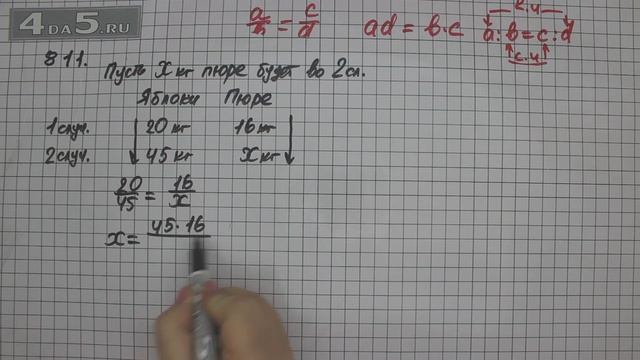 4DA5.RU
a/b = c/d  ad = b·c  a:b=c:d
к.ч
с.ч
811.
Пусть X кг пюре будет во 2 сл.
Яблоки Пюре
1 случ. 20 кг 16 кг
2 случ. 45 кг X кг
20/45 = 16/x
x = 45·16